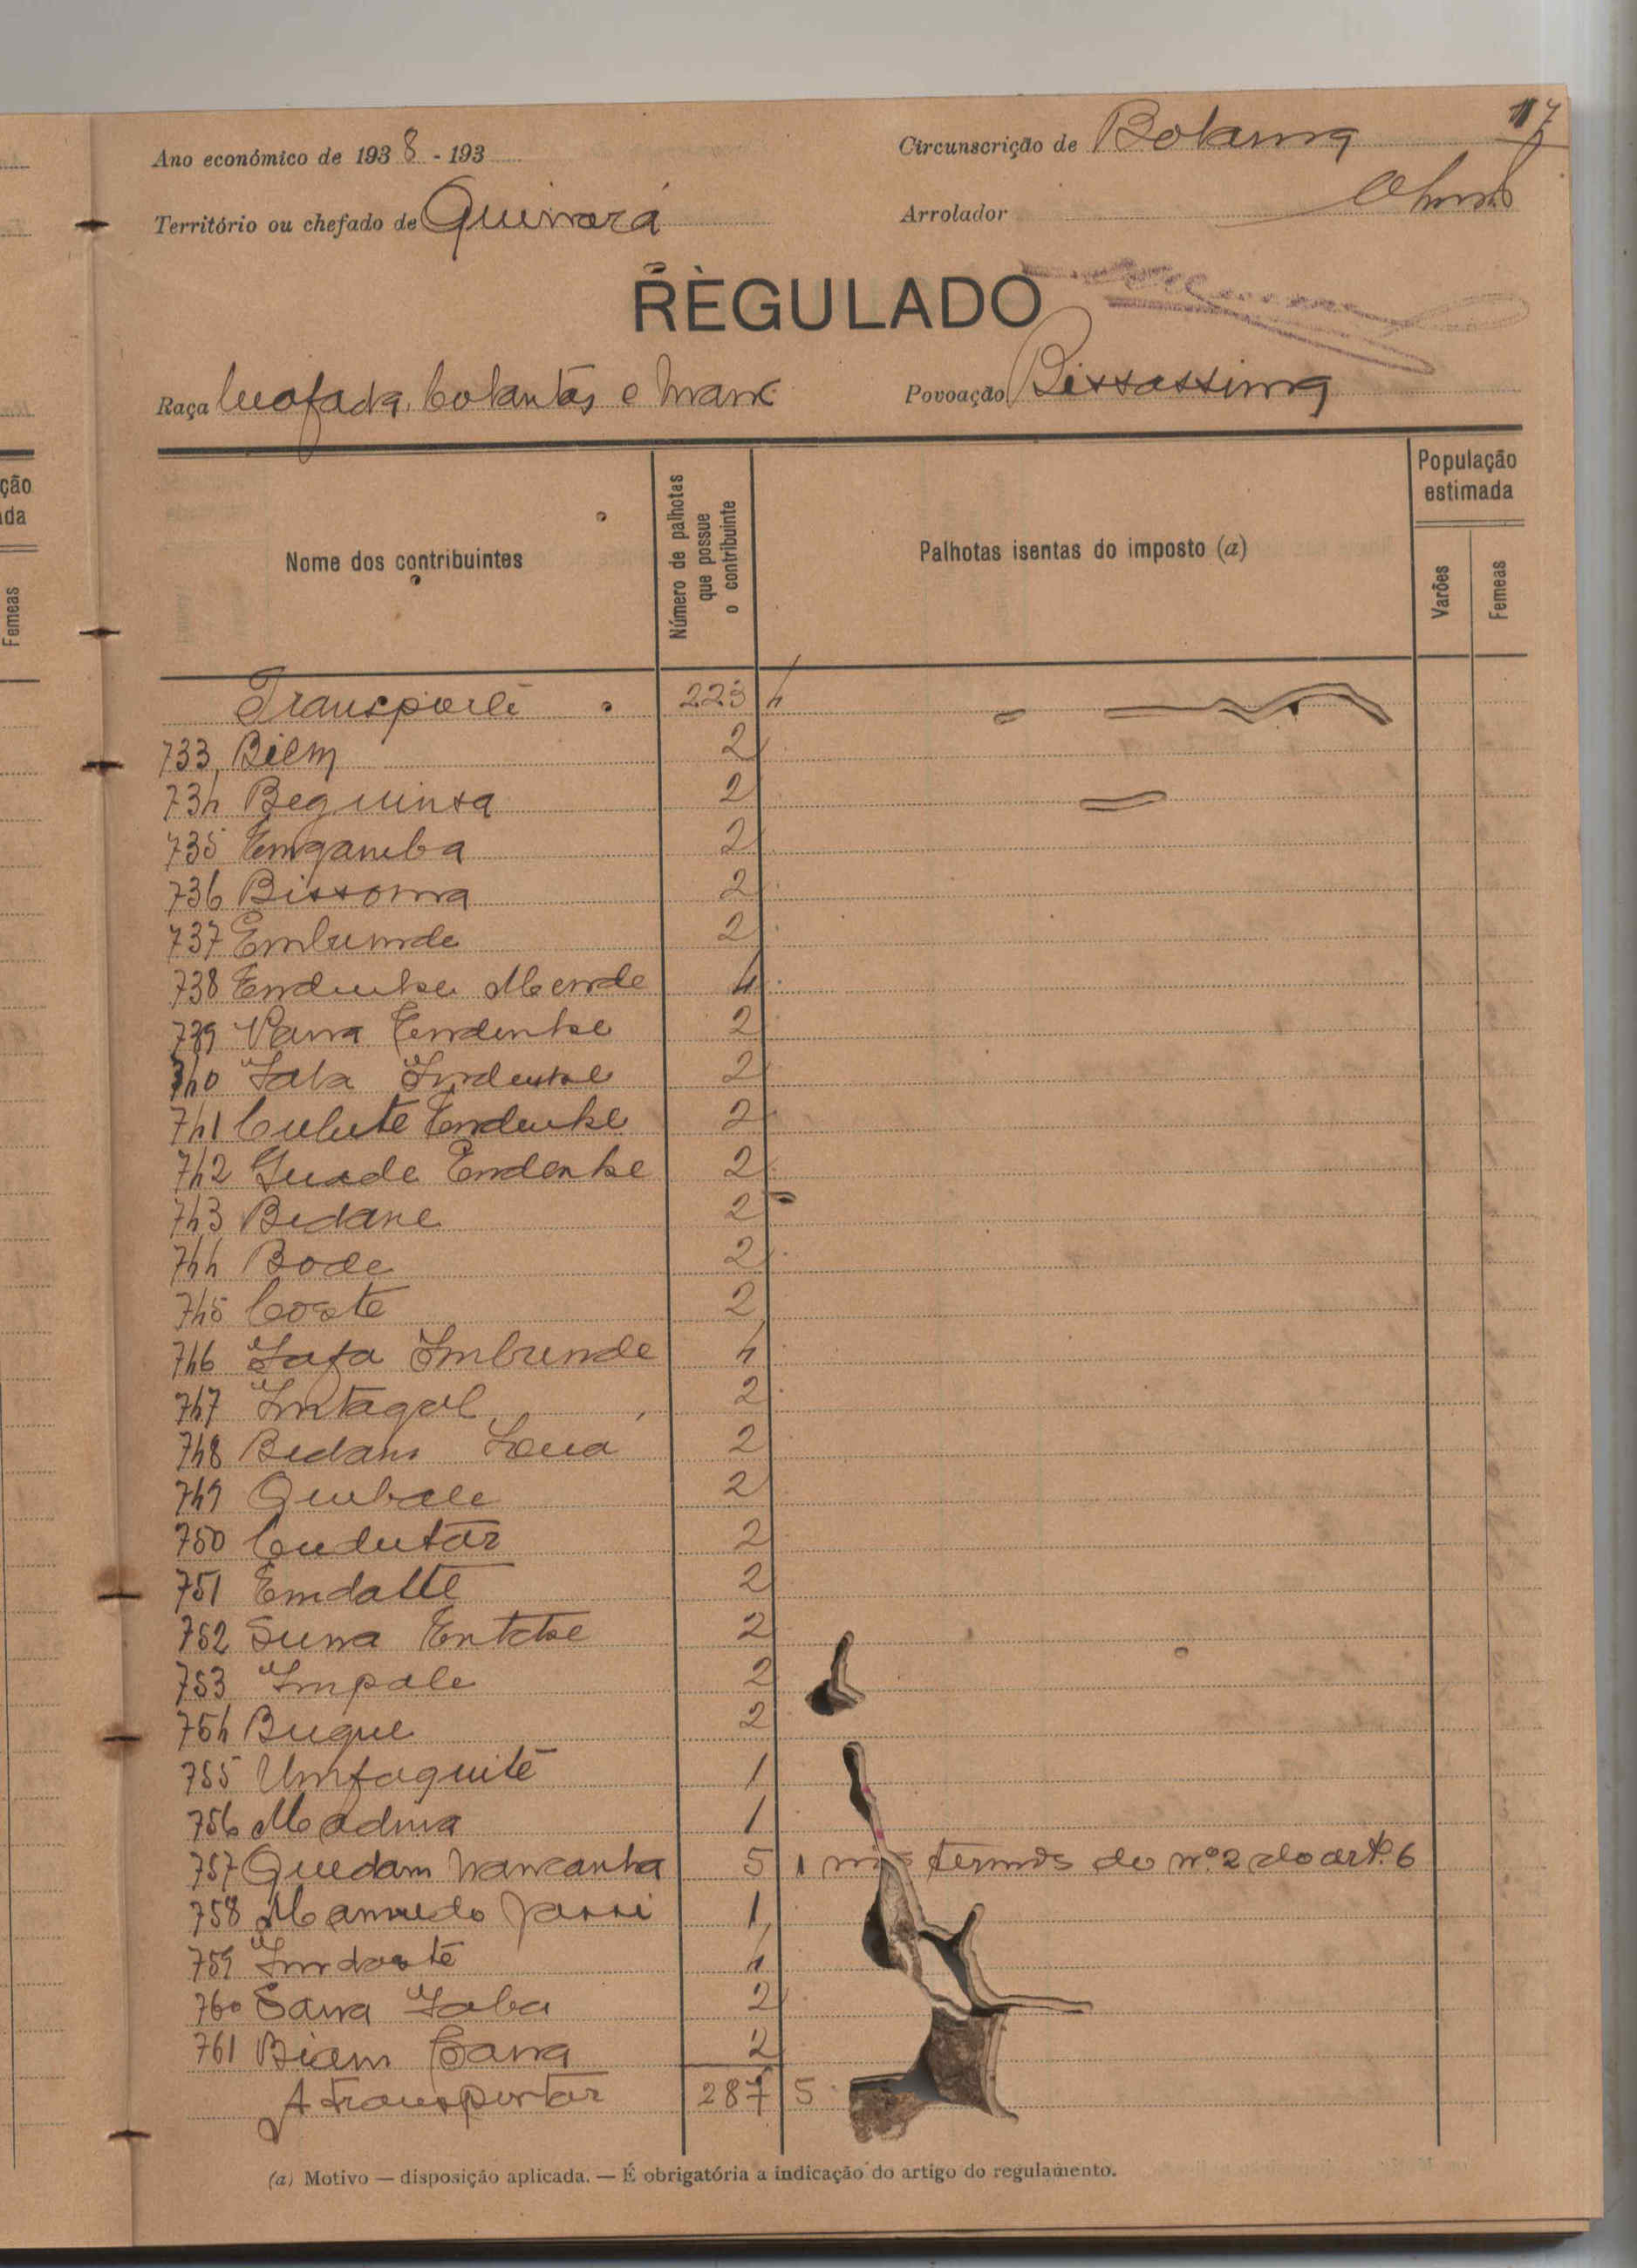 17
Ano económico de 1938 - 193
Circunscrição de Bolama
Território ou chefado de Quinará
Arrolador
REGULADO
Raça Beafada, Balantas e Manc.
Povoação Bissassema
ção
da
Femeas
Nome dos contribuintes
Número de palhotas que possue o contribuinte
Palhotas isentas do imposto (a)
População estimada
Varões
Femeas
Transporte 223 4
733 Biem 2
734 Beguinsa 2
735 Emgamba 2
736 Bissoma 2
737 Embunde 2
738 Endenke Mende 4
739 Vana Endenke 2
740 Iala Indenke 2
741 Culute Endenke 2
742 Guade Endenke 2
743 Bedane 2
744 Bode 2
745 Coate 2
746 Iafa Imbunde 4
747 Intagol 2
748 Bedam 2
749 Quebale 2
750 Cudutar 2
751 Emdatte 2
752 Suna 2
753 Impale 2
754 Buque 2
755 Umfaquité 1
756 Madina 1
757 Quedam Mancanha 5 1 nos termos do nº 2 do artº 6
758 Mamudo Jassi 1
759 Indoate 4
760 Sana Iaba 2
761 Biam Cana 2
A transportar 287 5
(a) Motivo — disposição aplicada. — É obrigatória a indicação do artigo do regulamento.